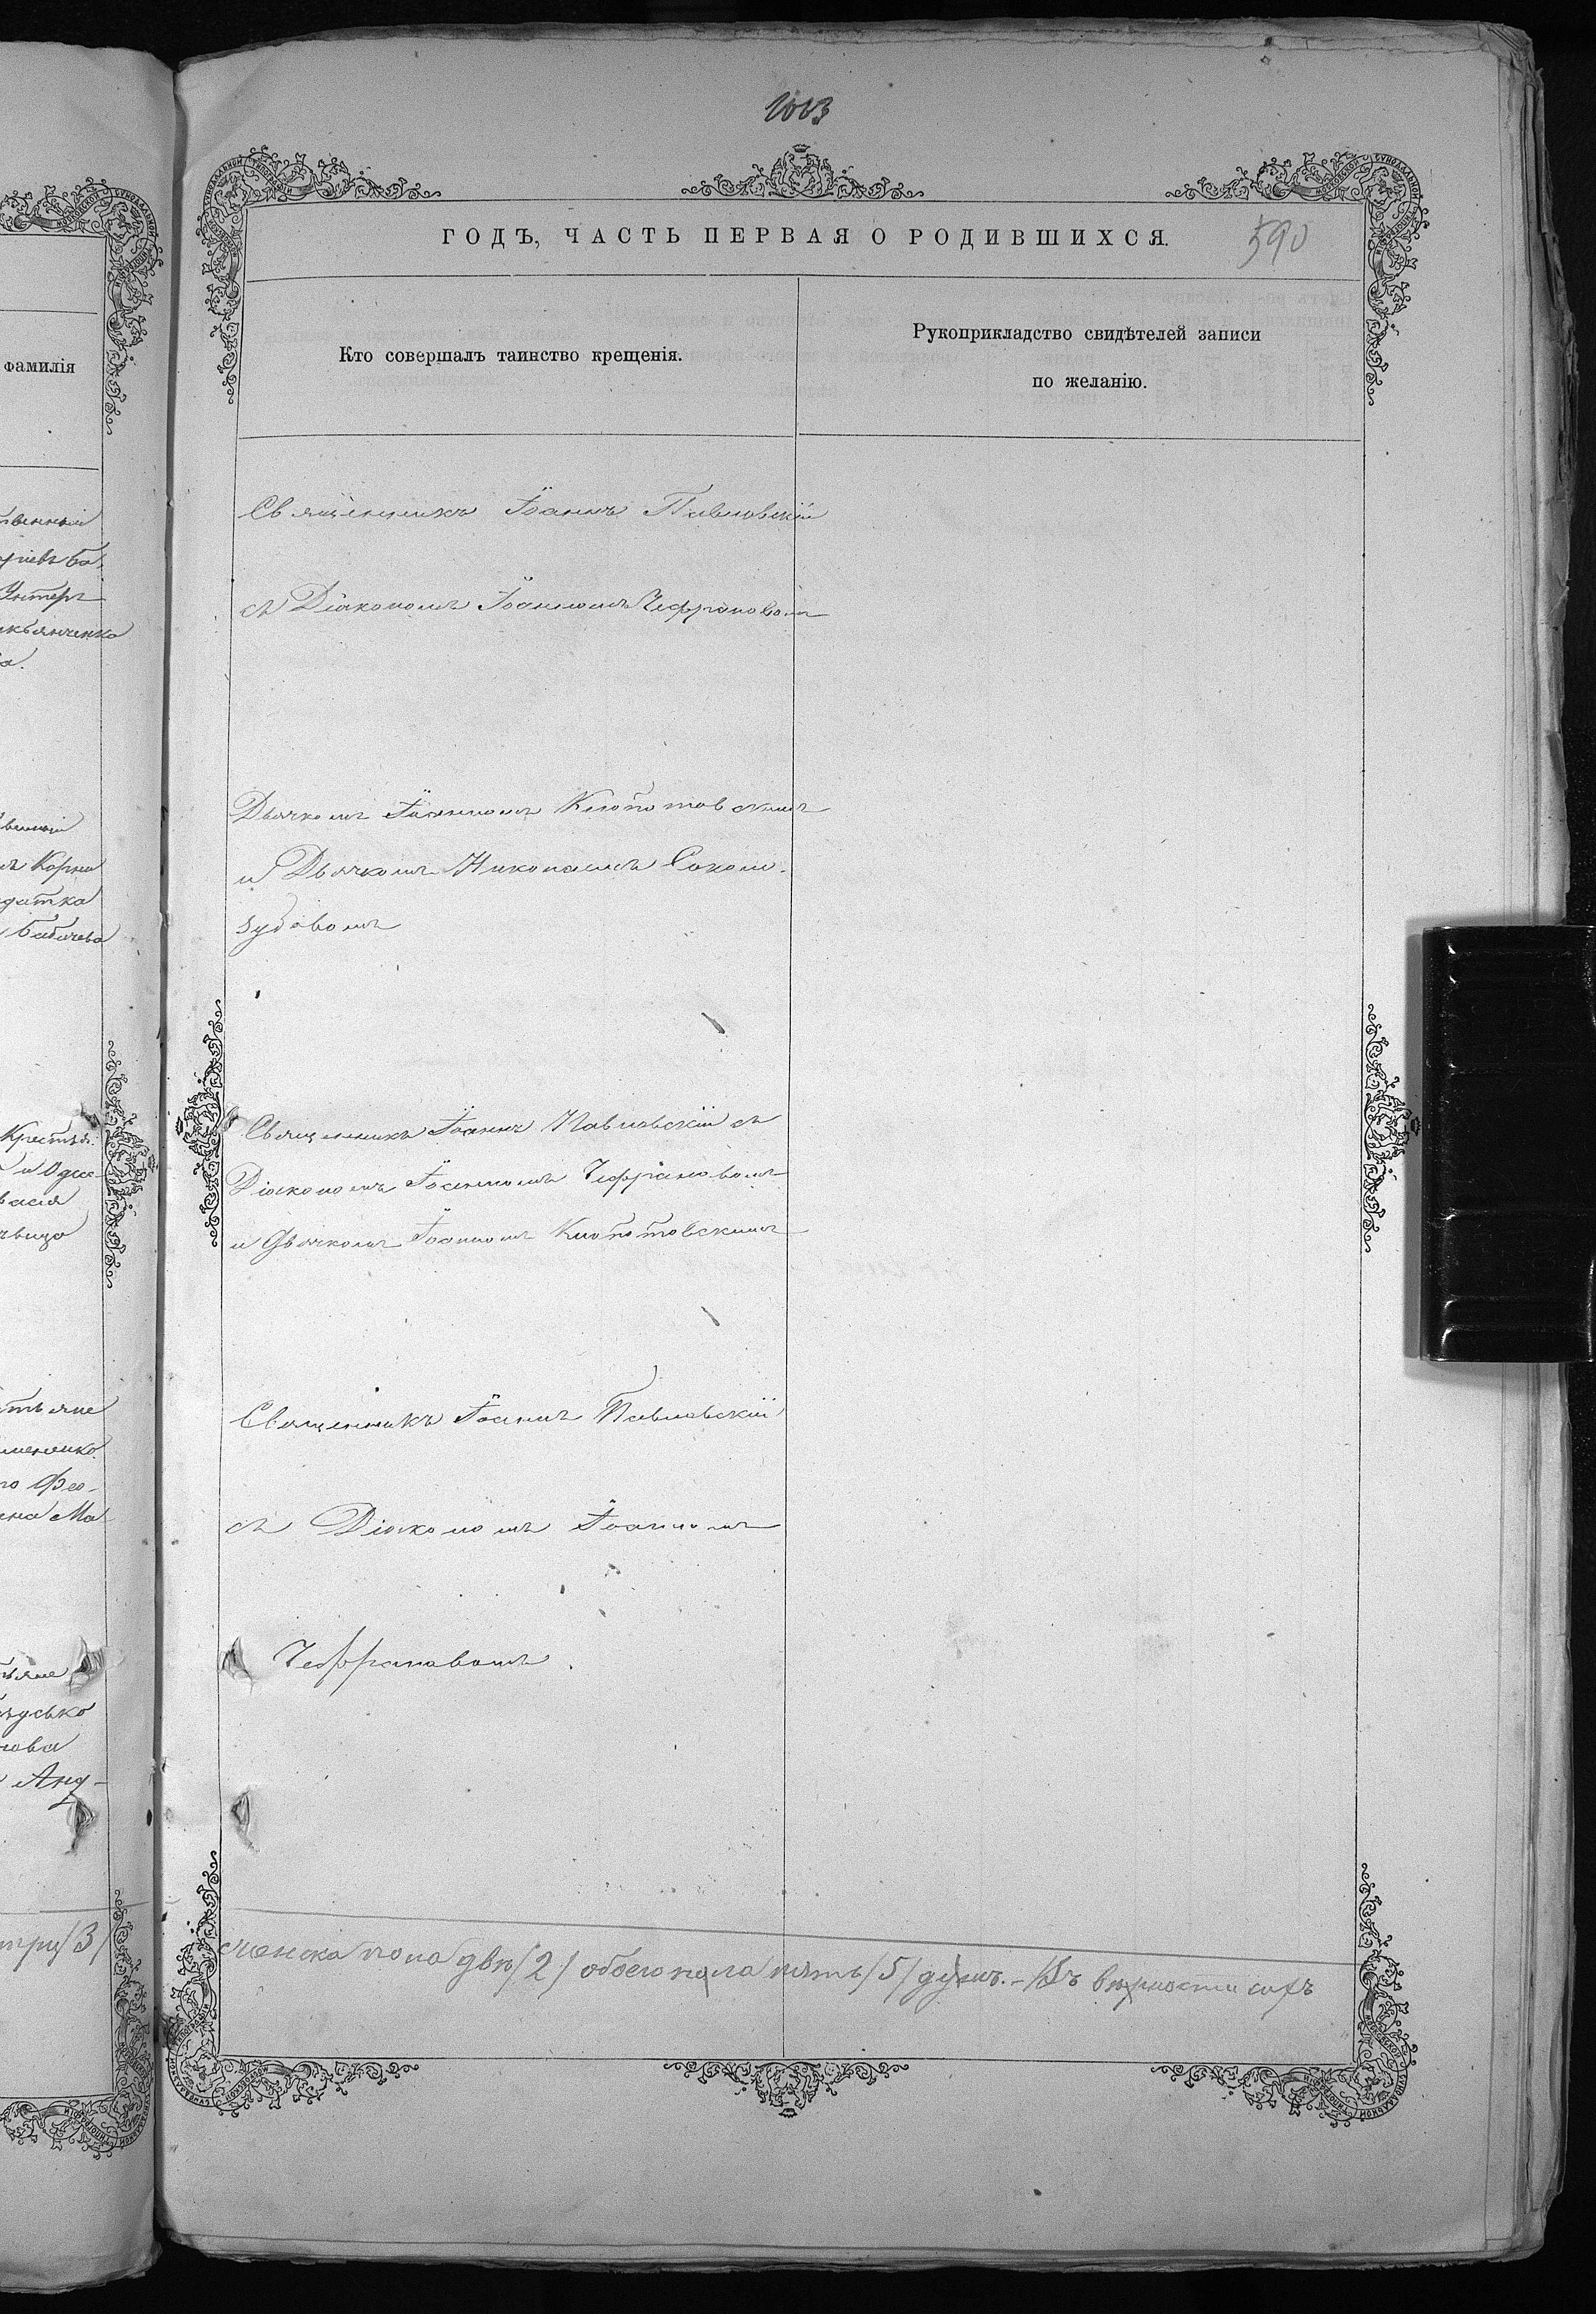 1003
ГОДЪ, ЧАСТЬ ПЕРВАЯ О РОДИВШИХСЯ.
590
фамилія
Кто совершалъ таинство крещенія.
Рукоприкладство свидѣтелей записи
по желанію.
Священникъ Іоаннъ Павловскій
съ Діакономъ Іоанномъ Чефрановомъ
Дьячкомъ Іоанномъ Клопотовскимъ
и Дьячкомъ Николаемъ Соколо-
зубовомъ
Священникъ Іоаннъ Павловскій съ
Діакономъ Іоанномъ Чефрановомъ
и Дьячкомъ Іоанномъ Клопотовскимъ
Священникъ Іоаннъ Павловскій
съ Діакономъ Іоанномъ
Чефрановомъ.
три /3/
женска пола двѣ /2/ обоего пола пять /5/ душъ. - Въ вѣрности сихъ